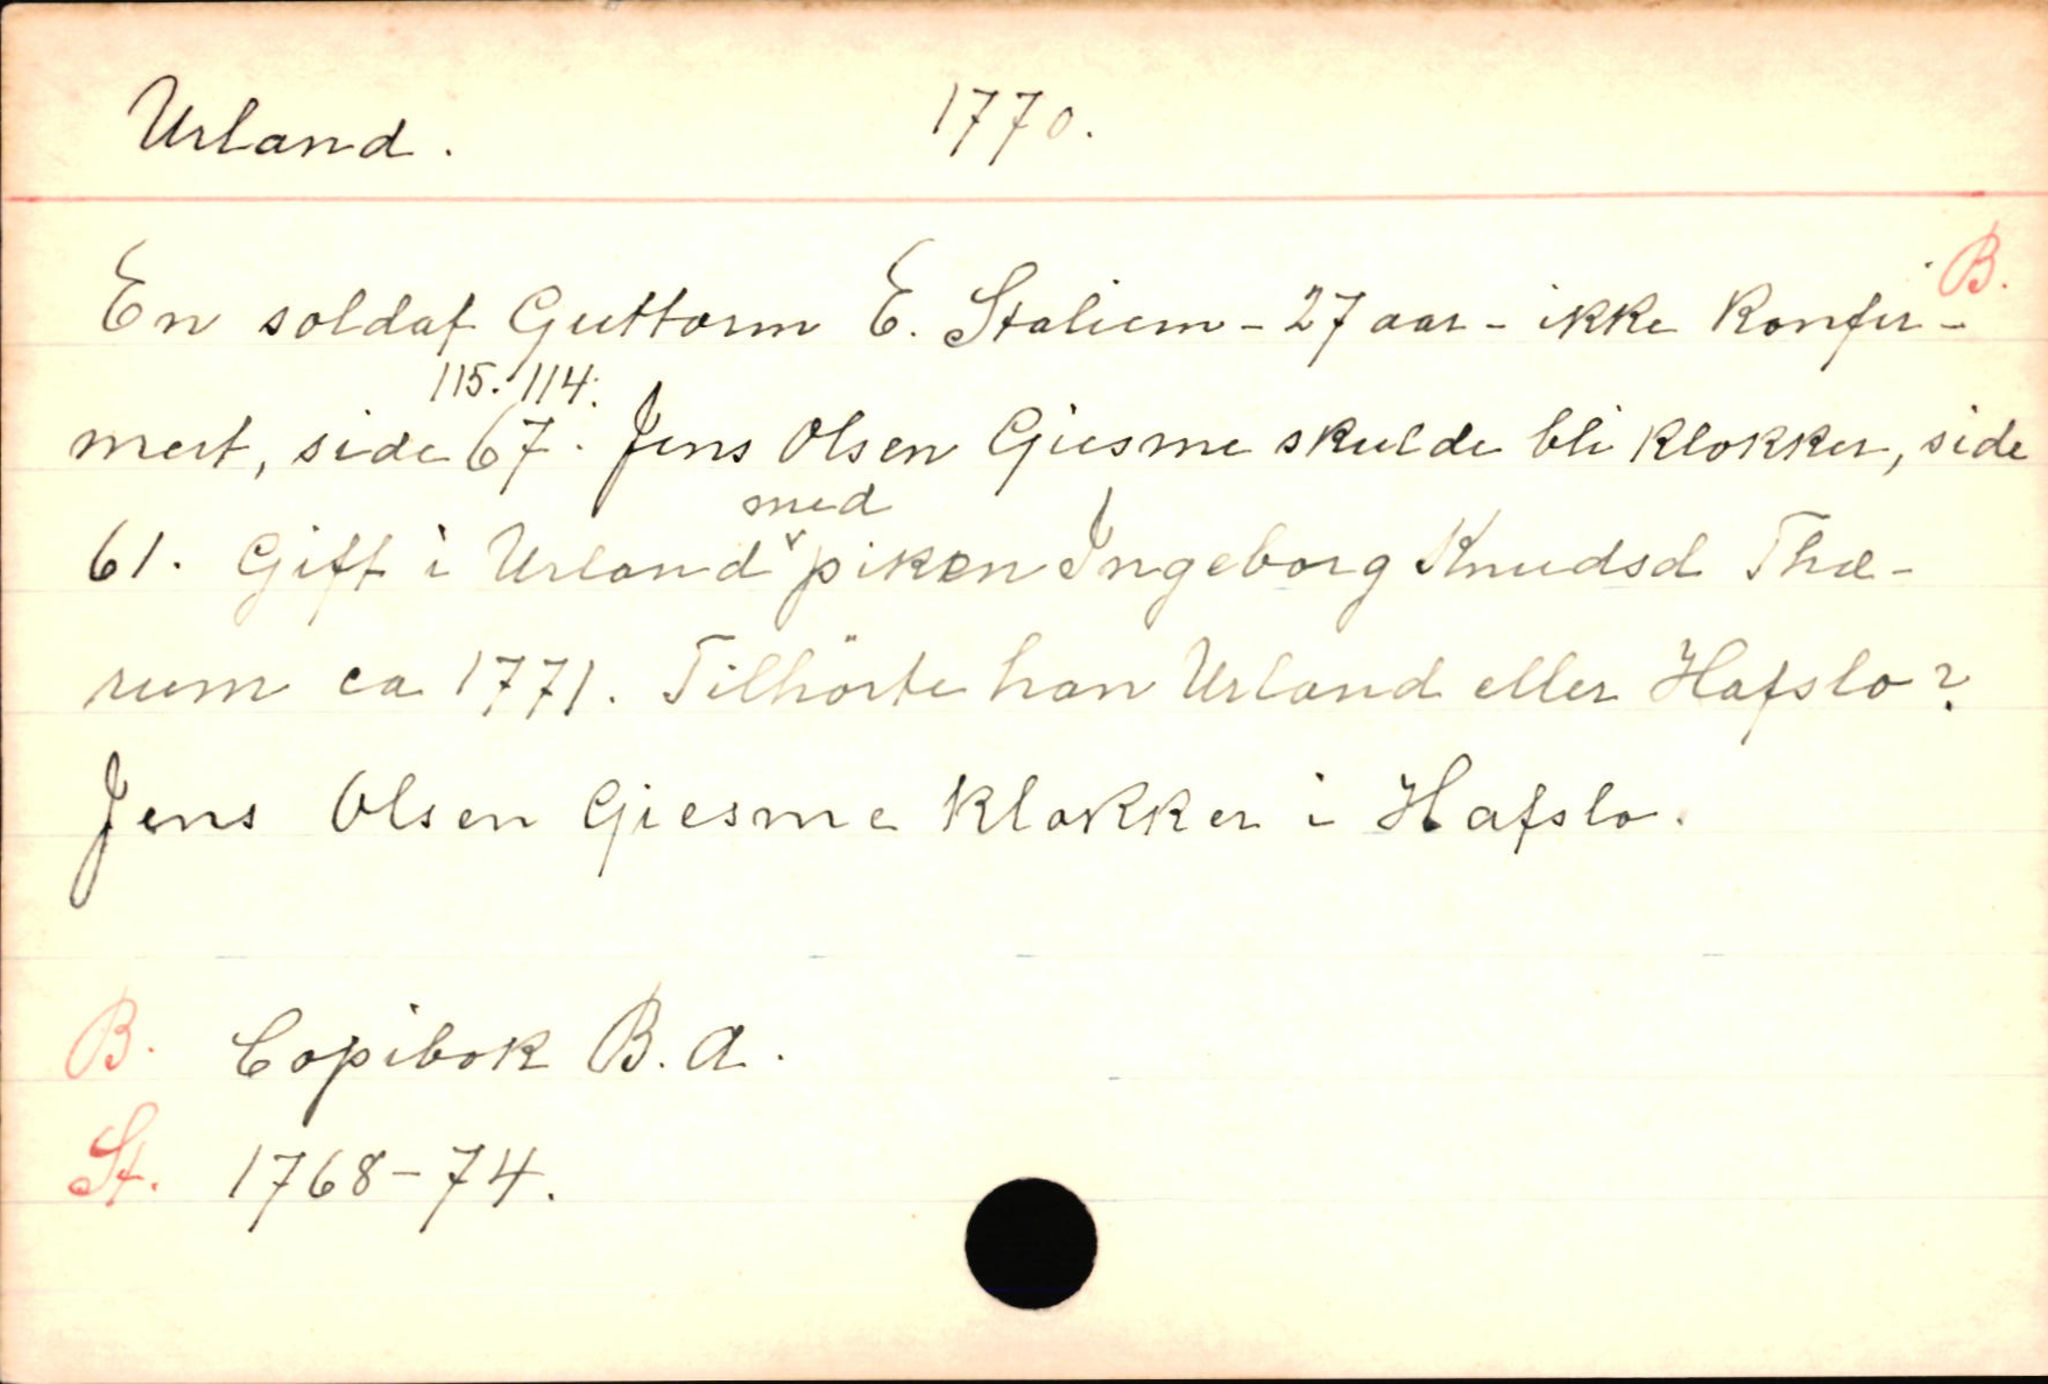 Urland. 1770.
B.
En soldat Guttorm E. Staliem - 27 aar - ikke Konfir-
115. 114.
mert, side 67. Jens Olsen Giesme skulde bli Klokker, side
med
61. Gift i Urland ᵛ piken Ingeborg Knudsd Thæ-
rum ca 1771. Tilhörte han Urland eller Hafslo?
Jens Olsen Giesme Klokker i Hafslo.
B. Copibok B. A.
St. 1768-74.